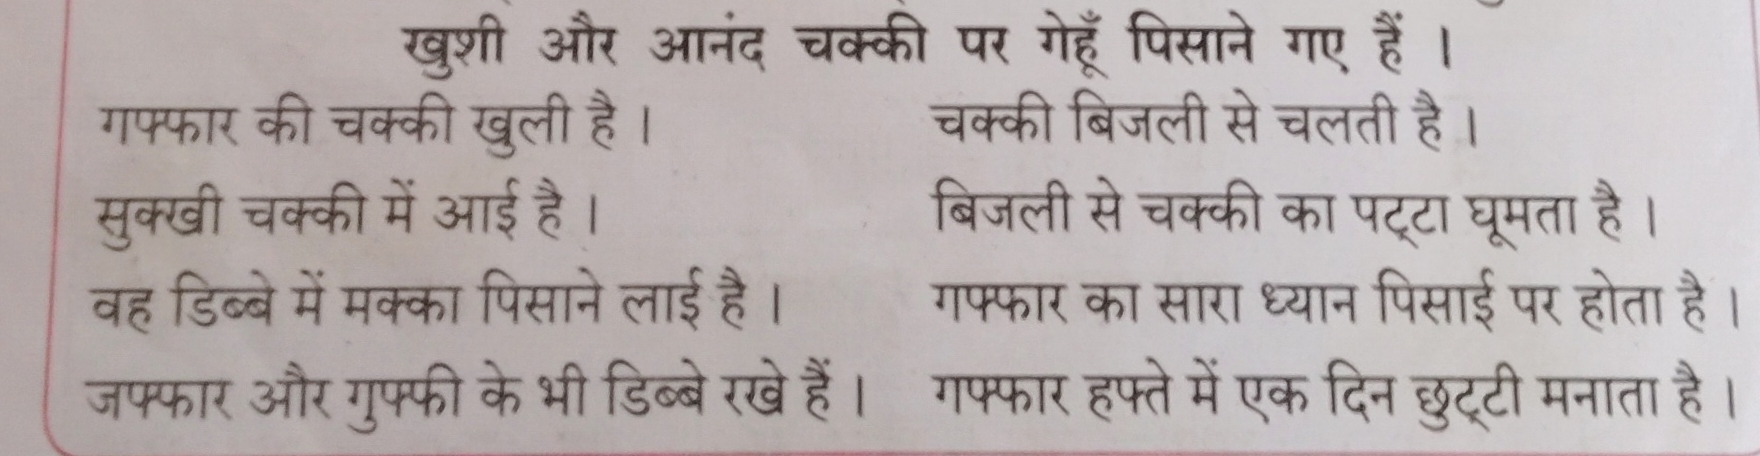 खुशी और आनंद चक्की पर गेहूँ पिसाने गए हैं ।
गफ्फार की चक्की खुली है ।
सुक्खी चक्की में आई है ।
वह डिब्बे में मक्का पिसाने लाई है ।
जफ्फार और गुफ्फी के भी डिब्बे रखे हैं ।
चक्की बिजली से चलती है ।
बिजली से चक्की का पट्टा घूमता है ।
गफ्फार का सारा ध्यान पिसाई पर होता है ।
गफ्फार हफ्ते में एक दिन छुट्टी मनाता है ।